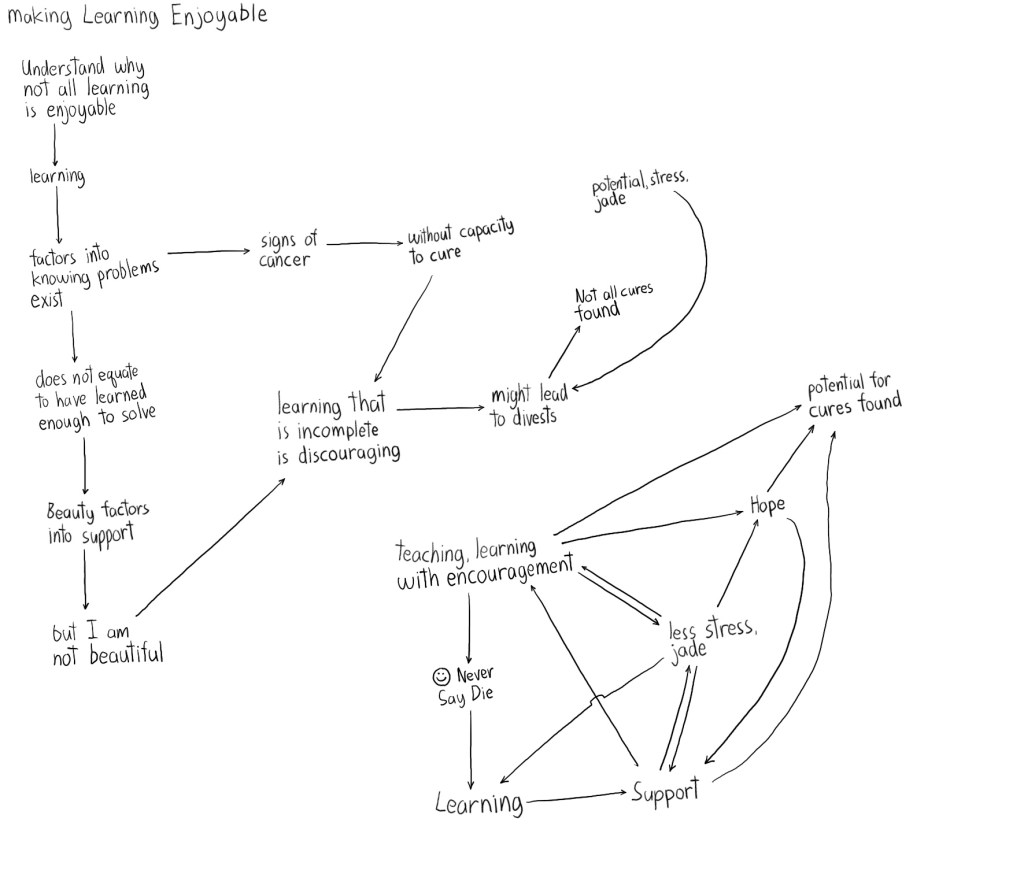 making Learning Enjoyable
Understand why
not all learning
is enjoyable
learning
factors into
knowing problems
exist
signs of
cancer
without capacity
to cure
potential, stress,
jade
Not all cures
found
does not equate
to have learned
enough to solve
learning that
is incomplete
is discouraging
might lead
to divests
potential for
cures found
Beauty factors
into support
but I am
not beautiful
teaching, learning
with encouragement
Hope
less stress,
jade
☺ Never
Say Die
Learning
Support